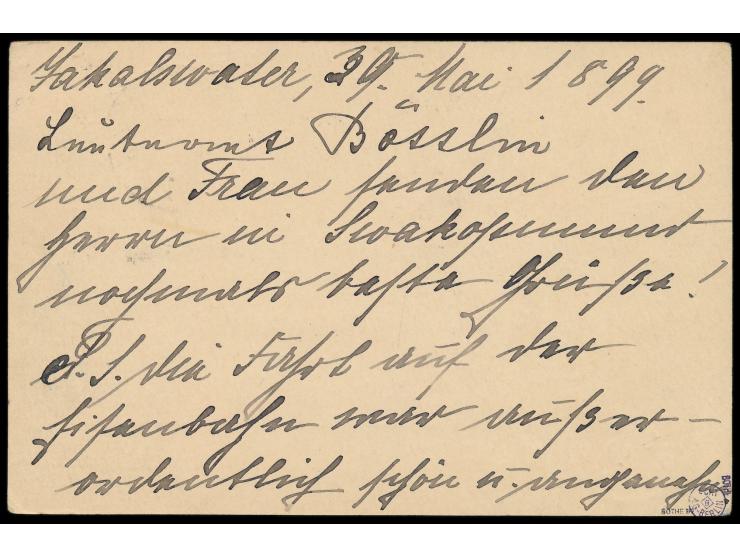 Jakalswater, 30. Mai 1899.
Leutenant Bösslin
und Frau senden den
Herrn in Swakopmund
nochmals beste Grüße!
P.S. die Fahrt auf der
Eisenbahn war außer-
ordentlich schön u. angenehm
BOTHE